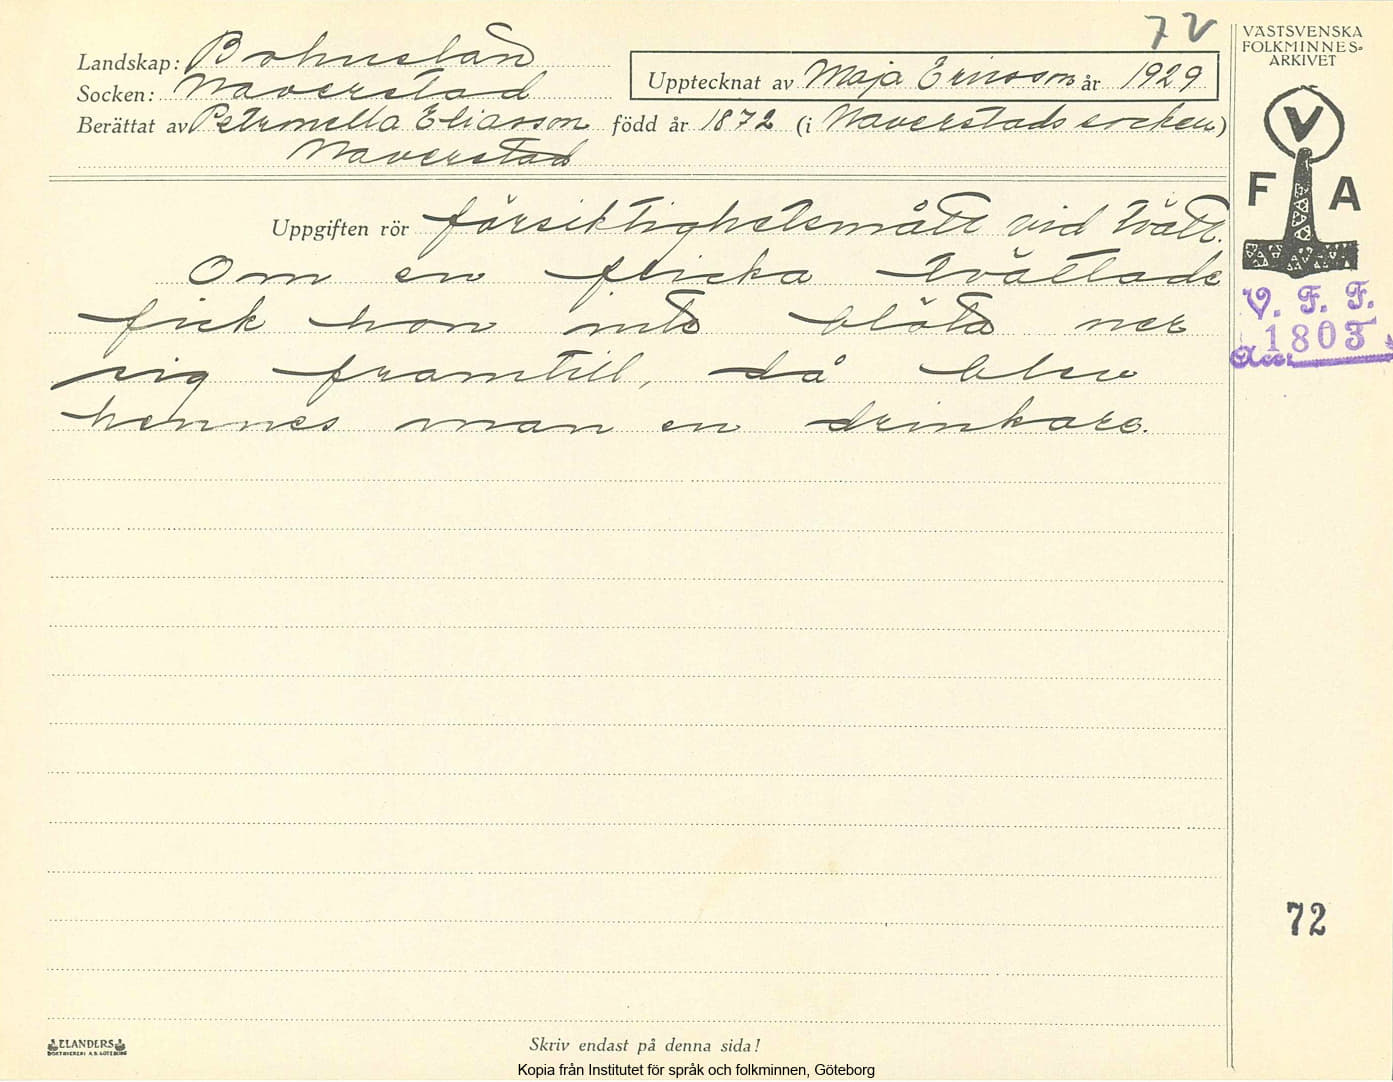 72
VÄSTSVENSKA
FOLKMINNES-
ARKIVET
Landskap: Bohuslän
Socken: Naverstad
Upptecknat av Maja Ericsson år 1929
Berättat av Petronella Eliasson född år 1872 (i Naverstads socken)
Naverstad
V
F A
Uppgiften rör försiktighetsmått vid tvätt.
Om en flicka tvättade
fick hon inte blöta ner
sig framtill, då blev
hennes man en drinkare.
V. F. F.
1803
Acc.
72
ELANDERS
BOKTRYCKERI A.B. GÖTEBORG
Skriv endast på denna sida!
Kopia från Institutet för språk och folkminnen, Göteborg